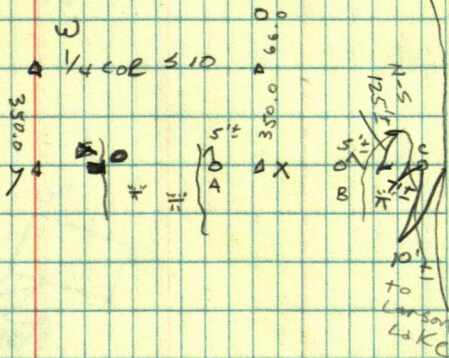 E 1/4 COR S 10
0 66.0
350.0
350.0
y
X
5'±
A
5'±
B
N-S
125'±
C
10'±
to
Larson
Lake